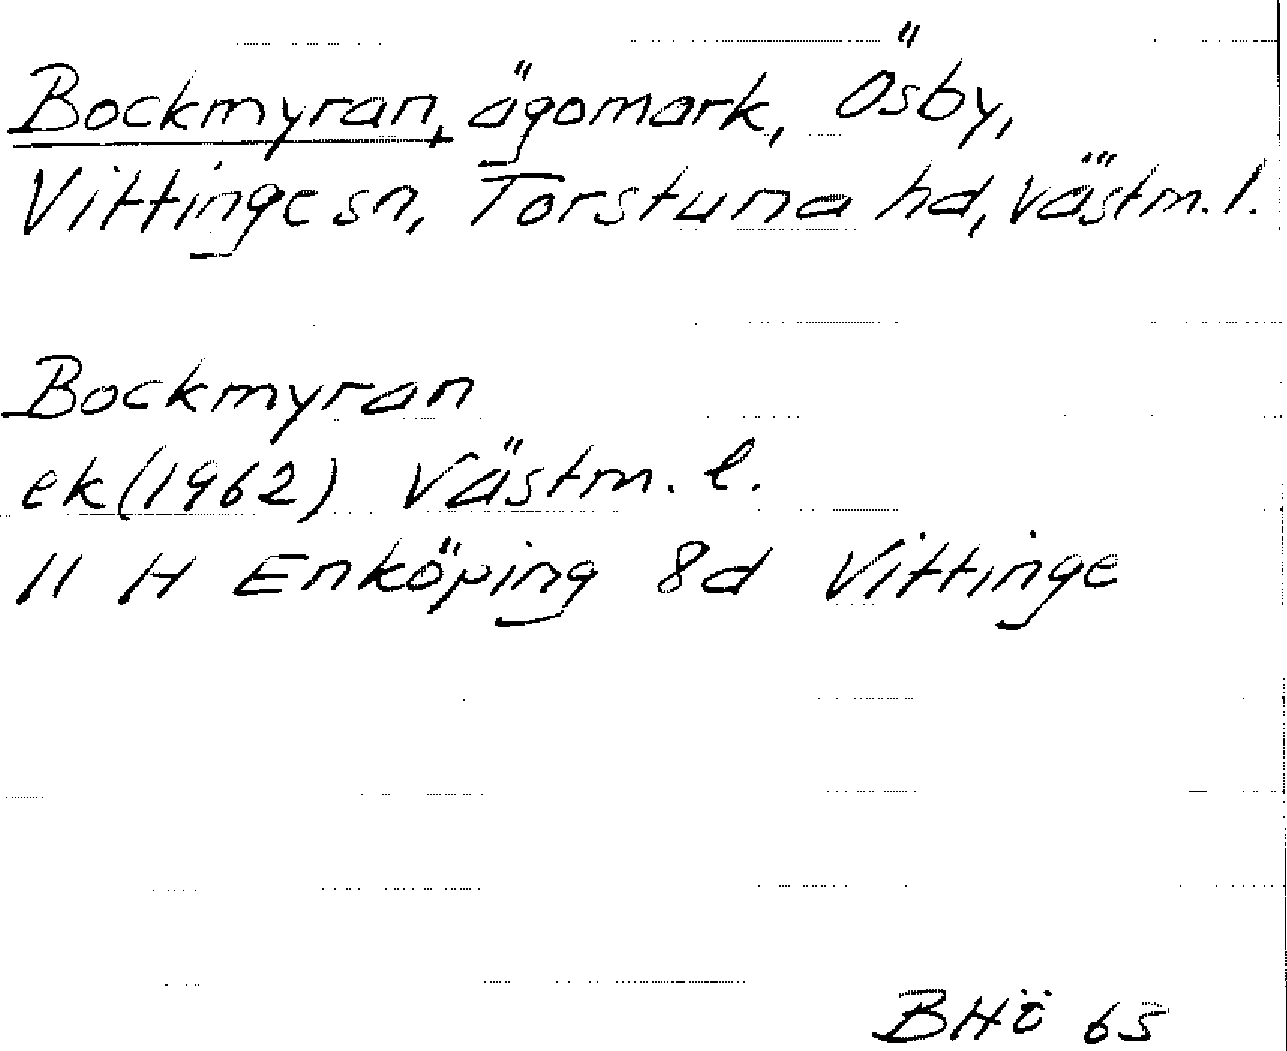 Bockmyran, ägomark, Ösby,
Vittinge sn, Torstuna hd, Västm. l.
Bockmyran
ek (1962) Västm. l.
11 H Enköping 8d Vittinge
BHö 65